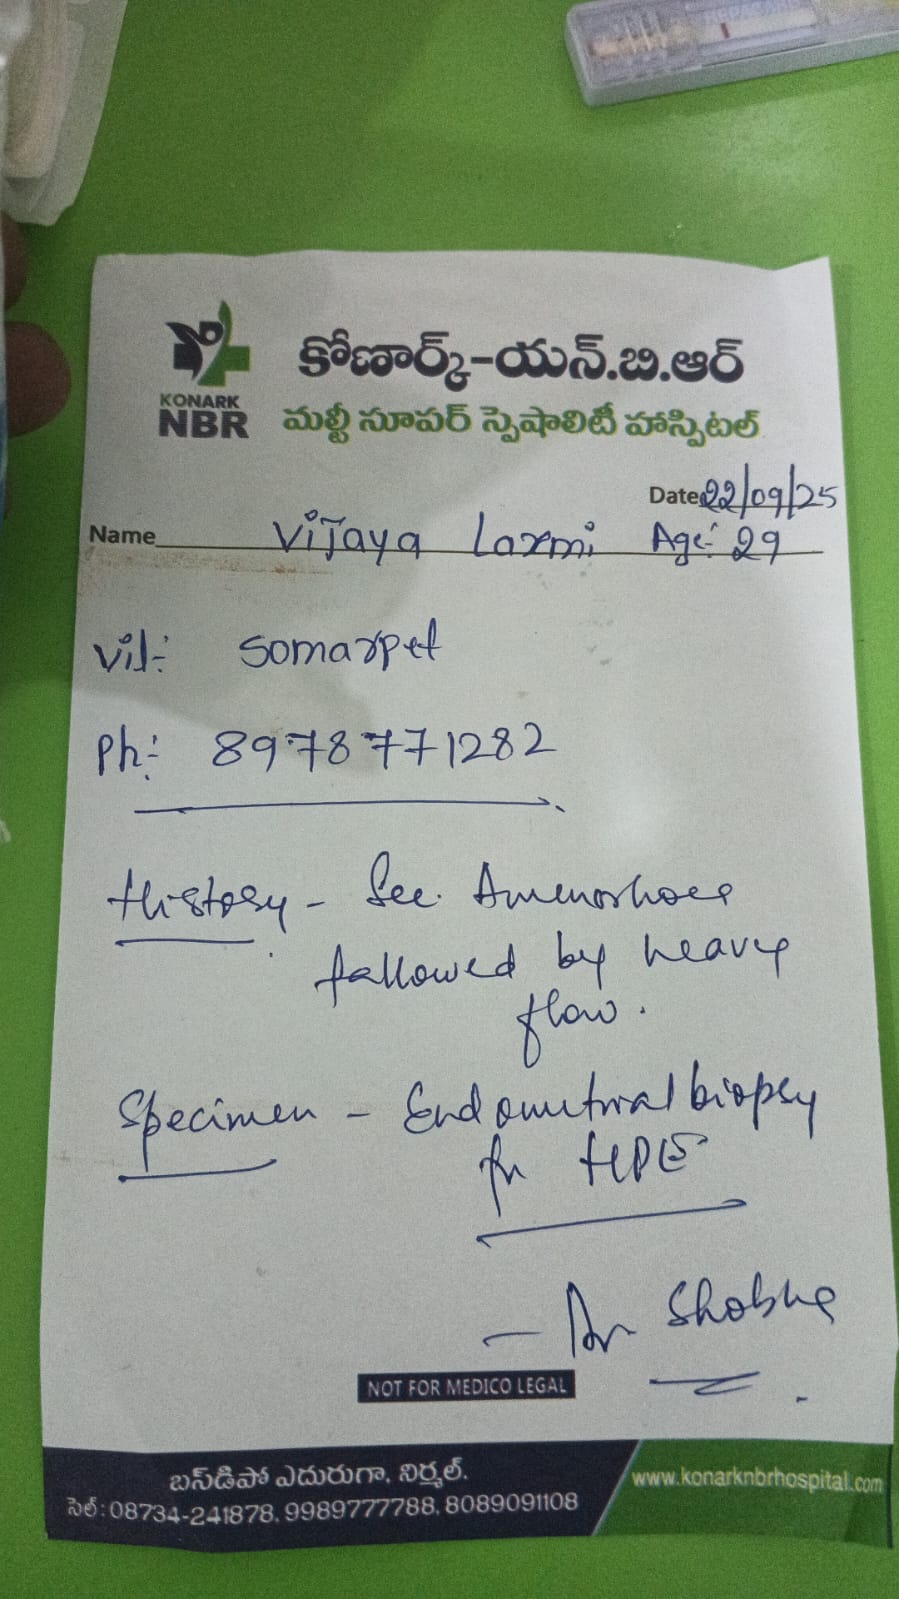 కోణార్క్-యన్.బి.ఆర్
KONARK
NBR
మల్టీ సూపర్ స్పెషాలిటీ హాస్పిటల్
Date: 22/09/25
Name Vijaya Laxmi Age: 29
Vil:- Somarpet
Ph:- 8978771282
History - Sec. Amenorhoea
followed by heavy
flow.
Specimen - Endometrial biopsy
for HPE
- Dr Shobha
NOT FOR MEDICO LEGAL
బస్‌డిపో ఎదురుగా, నిర్మల్.
సెల్: 08734-241878, 9989777788, 8089091108
www.konarknbrhospital.com